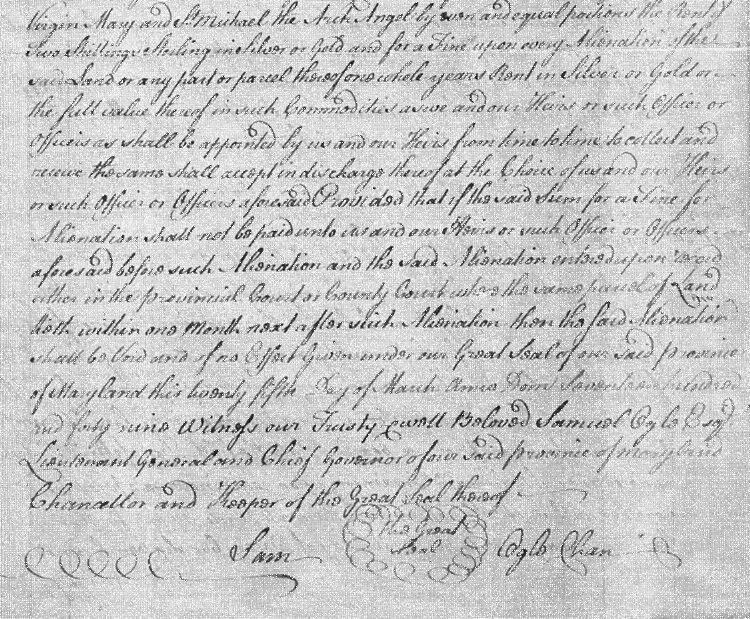 Virgin Mary and St Michael the Arch Angel by even and equal portions the Rent of
Two Shillings Sterling in Silver or Gold and for a Fine upon every Alienation of the
said Land or any part or parcel thereof one whole years Rent in Silver or Gold or
the full value thereof in such Commodities as we and our Heirs or such Officer or
Officers as shall be appointed by us and our Heirs from time to time to collect and
receive the same shall accept in discharge thereof at the Choice of us and our Heirs
or such Officer or Officers aforesaid Provided that if the said Sum for a Fine for
Alienation shall not be paid unto us and our Heirs or such Officer or Officers
aforesaid before such Alienation and the said Alienation entered upon record
either in the provincial Court or County Court where the same parcel of Land
lieth within one Month next after such Alienation then the said Alienation
shall be Void and of no Effect Given under our Great Seal of our said province
of Maryland this twenty fifth Day of March Anno Dom Seventeen hundred
and forty nine Witness our Trusty & well Beloved Samuel Ogle Esqr
Lieutenant General and Chief Governor of our said province of Maryland
Chancellor and Keeper of the Great Seal thereof
the Great
Sam Seal Ogle Chan